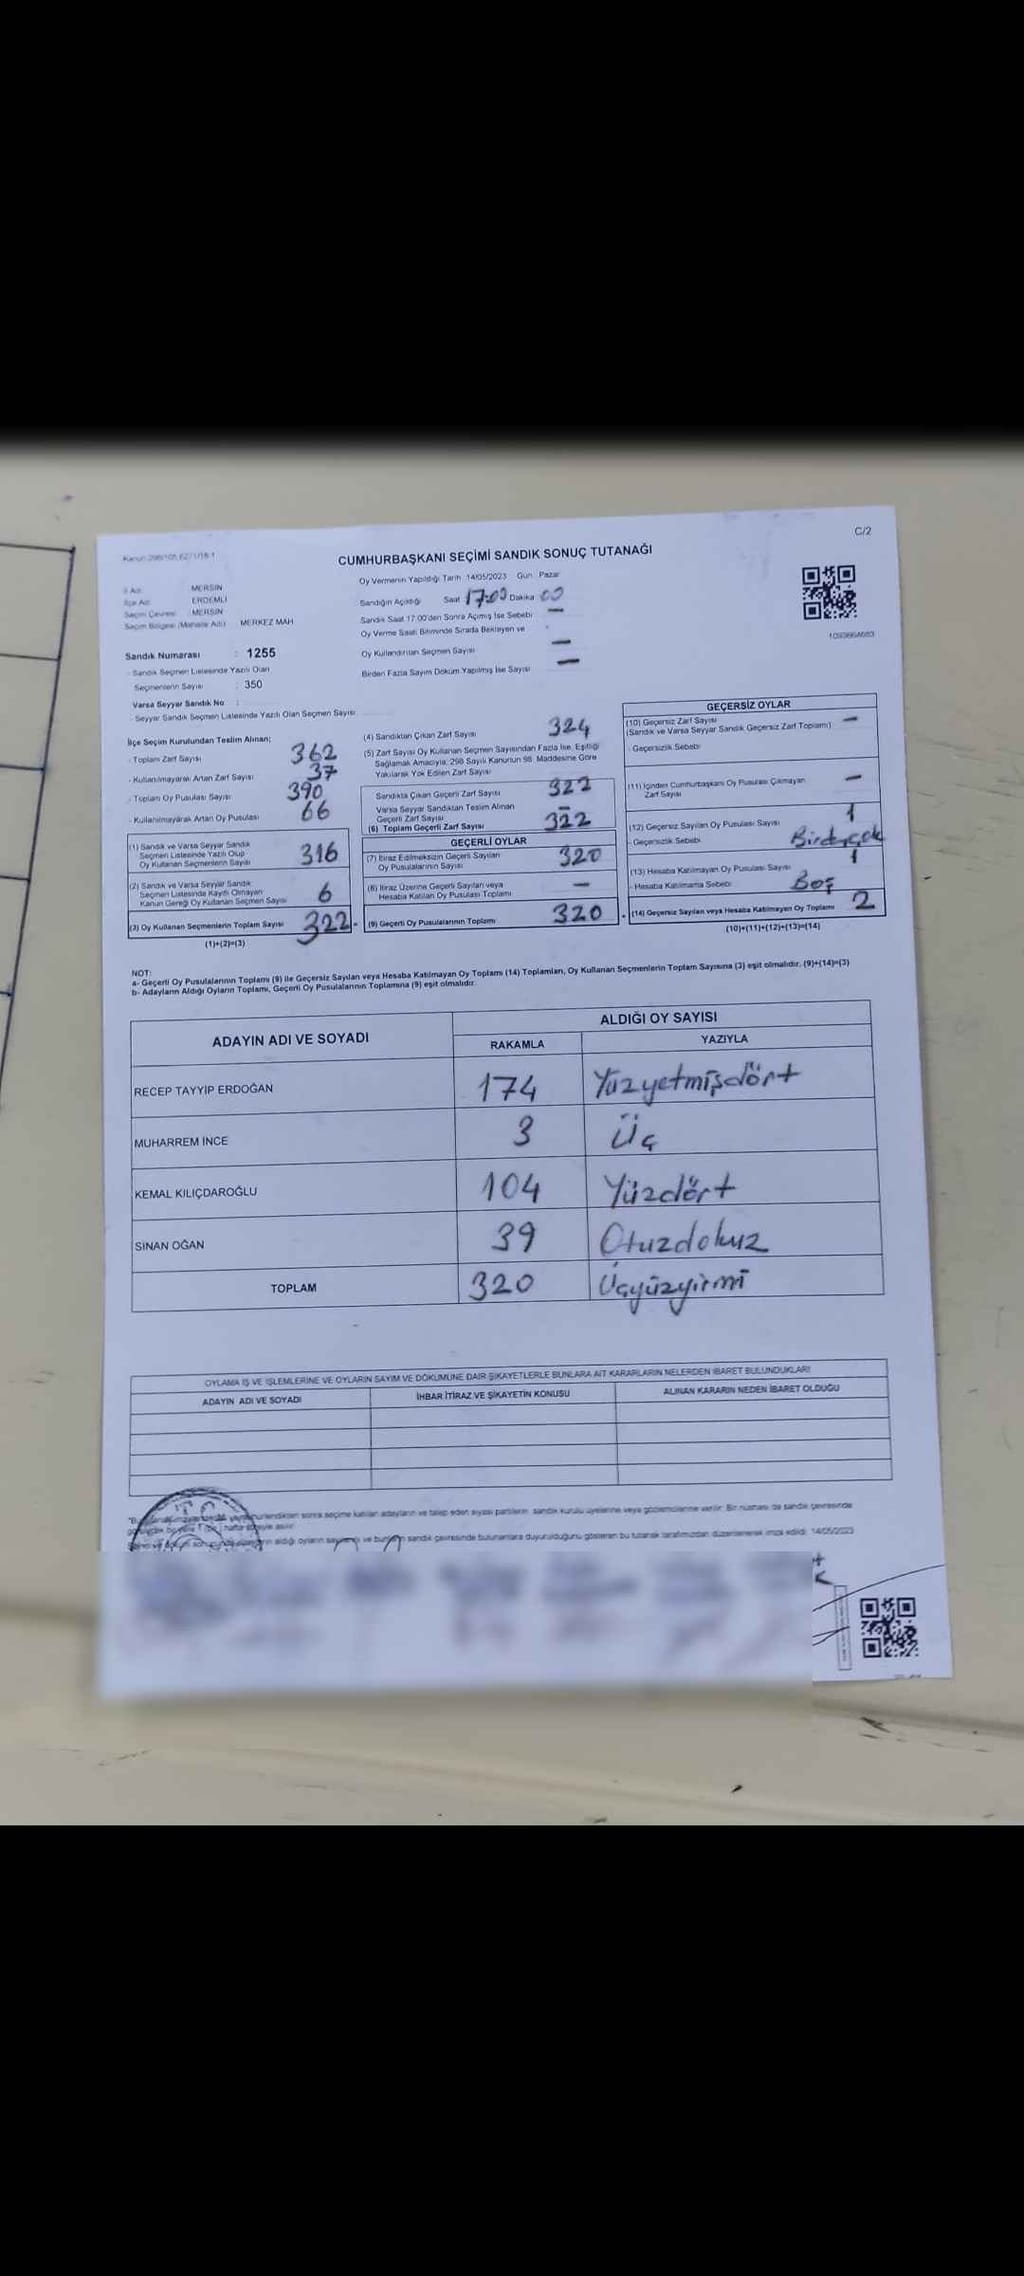 C/2
CUMHURBAŞKANI SEÇİMİ SANDIK SONUÇ TUTANAĞI
İl Adı : MERSİN
İlçe Adı : ERDEMLİ
Seçim Çevresi : MERSİN
Seçim Bölgesi (Mahalle Adı) : MERKEZ MAH
Sandık Numarası : 1255
- Sandık Seçmen Listesinde Yazılı Olan
Seçmenlerin Sayısı : 350
Varsa Seyyar Sandık No :
- Seyyar Sandık Seçmen Listesinde Yazılı Olan Seçmen Sayısı
Oy Vermenin Yapıldığı Tarih 14/05/2023 Gün Pazar
Sandığın Açıldığı Saat 17:00 Dakika 00
Sandık Saat 17:00'den Sonra Açılmış İse Sebebi —
Oy Verme Saati Bitiminde Sırada Bekleyen ve
Oy Kullandırılan Seçmen Sayısı —
Birden Fazla Sayım Döküm Yapılmış İse Sayısı —
İlçe Seçim Kurulundan Teslim Alınan;
- Toplam Zarf Sayısı 362
- Kullanılmayarak Artan Zarf Sayısı 37
- Toplam Oy Pusulası Sayısı 390
- Kullanılmayarak Artan Oy Pusulası 66
(1) Sandık ve Varsa Seyyar Sandık
Seçmen Listesinde Yazılı Olup
Oy Kullanan Seçmenlerin Sayısı 316
(2) Sandık ve Varsa Seyyar Sandık
Seçmen Listesinde Kayıtlı Olmayan
Kanun Gereği Oy Kullanan Seçmen Sayısı 6
(3) Oy Kullanan Seçmenlerin Toplam Sayısı 322
(1)+(2)=(3)
(4) Sandıktan Çıkan Zarf Sayısı 324
(5) Zarf Sayısı Oy Kullanan Seçmen Sayısından Fazla İse, Eşitliği
Sağlamak Amacıyla, 298 Sayılı Kanunun 98. Maddesine Göre
Yakılarak Yok Edilen Zarf Sayısı
Sandıkta Çıkan Geçerli Zarf Sayısı 322
Varsa Seyyar Sandıktan Teslim Alınan
Geçerli Zarf Sayısı —
(6) Toplam Geçerli Zarf Sayısı 322
GEÇERLİ OYLAR
(7) İtiraz Edilmeksizin Geçerli Sayılan
Oy Pusulalarının Sayısı 320
(8) İtiraz Üzerine Geçerli Sayılan veya
Hesaba Katılan Oy Pusulası Toplamı —
(9) Geçerli Oy Pusulalarının Toplamı 320
GEÇERSİZ OYLAR
(10) Geçersiz Zarf Sayısı —
(Sandık ve Varsa Seyyar Sandık Geçersiz Zarf Toplamı)
- Geçersizlik Sebebi
(11) İçinden Cumhurbaşkanı Oy Pusulası Çıkmayan
Zarf Sayısı —
(12) Geçersiz Sayılan Oy Pusulası Sayısı 1
- Geçersizlik Sebebi Birdençok
(13) Hesaba Katılmayan Oy Pusulası Sayısı 1
- Hesaba Katılmama Sebebi Boş
(14) Geçersiz Sayılan veya Hesaba Katılmayan Oy Toplamı 2
(10)+(11)+(12)+(13)=(14)
NOT:
a- Geçerli Oy Pusulalarının Toplamı (9) ile Geçersiz Sayılan veya Hesaba Katılmayan Oy Toplamı (14) Toplamları, Oy Kullanan Seçmenlerin Toplam Sayısına (3) eşit olmalıdır. (9)+(14)=(3)
b- Adayların Aldığı Oyların Toplamı, Geçerli Oy Pusulalarının Toplamına (9) eşit olmalıdır.
ADAYIN ADI VE SOYADI ALDIĞI OY SAYISI
RAKAMLA YAZIYLA
RECEP TAYYİP ERDOĞAN 174 Yüzyetmişdört
MUHARREM İNCE 3 Üç
KEMAL KILIÇDAROĞLU 104 Yüzdört
SİNAN OĞAN 39 Otuzdokuz
TOPLAM 320 Üçyüzyirmi
OYLAMA İŞ VE İŞLEMLERİNE VE OYLARIN SAYIM VE DÖKÜMÜNE DAİR ŞİKAYETLERLE BUNLARA AİT KARARLARIN NELERDEN İBARET BULUNDUKLARI
ADAYIN ADI VE SOYADI İHBAR İTİRAZ VE ŞİKAYETİN KONUSU ALINAN KARARIN NEDEN İBARET OLDUĞU
sonra seçime katılan adayların ve talep eden siyasi partilerin sandık kurulu üyelerine veya gözlemcilerine verilir. Bir nüshası da sandık çevresinde
hafta süreyle asılır.
aldığı oyların sayısını ve bunların sandık çevresinde bulunanlara duyurulduğunu gösteren bu tutanak tarafımızdan düzenlenerek imza edildi. 14/05/2023
T.C.